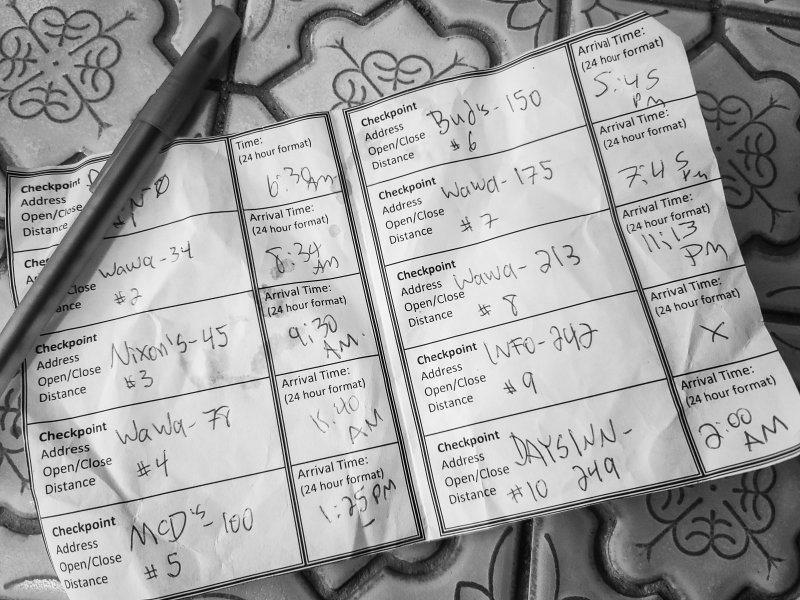 Checkpoint
#1
Time:
(24 hour format)
6:30 AM
Wawa-34
#2
Arrival Time:
(24 hour format)
8:34 AM
Checkpoint Nixon's-45
Address
Open/Close #3
Distance
Arrival Time:
(24 hour format)
9:30 AM.
Checkpoint WaWa-78
Address
Open/Close #4
Distance
Arrival Time:
(24 hour format)
AM
Checkpoint McD's-100
Address
Open/Close #5
Distance
Arrival Time:
(24 hour format)
1:25 PM
Checkpoint Bud's-150
Address
Open/Close #6
Distance
Arrival Time:
(24 hour format)
5:45 PM
Checkpoint WaWa-175
Address
Open/Close #7
Distance
Arrival Time:
(24 hour format)
7:45 PM
Checkpoint WaWa-213
Address
Open/Close #8
Distance
Arrival Time:
(24 hour format)
11:13 PM
Checkpoint INFO-242
Address
Open/Close #9
Distance
Arrival Time:
(24 hour format)
X
Checkpoint DAYS INN-
Address 249
Open/Close #10
Distance
Arrival Time:
(24 hour format)
2:00 AM